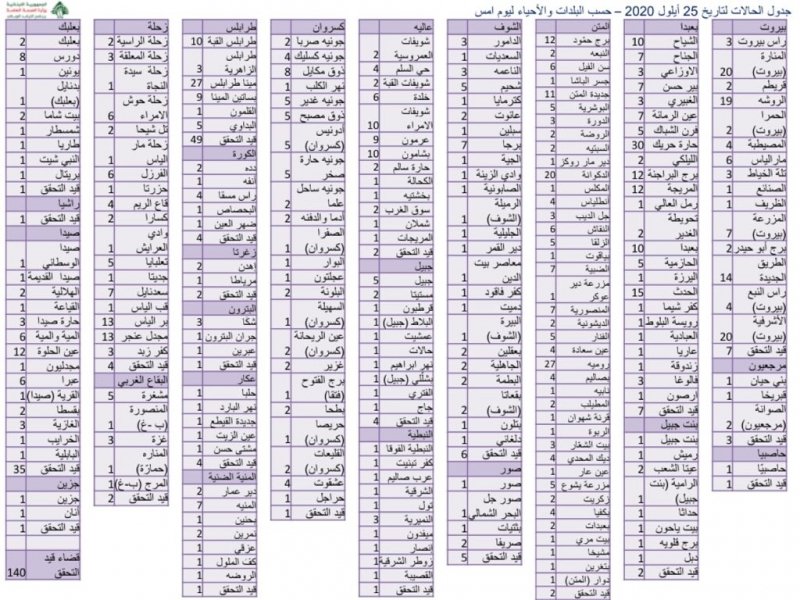 جدول الحالات لتاريخ 25 أيلول 2020 – حسب البلدات والأحياء ليوم امس
الجمهورية اللبنانية
وزارة الصحة العامة
بيروت
راس بيروت 3
المنارة
(بيروت) 20
قريطم 2
الروشه 19
الحمرا
(بيروت) 2
المصيطبة 4
مار الياس 6
تلة الخياط 3
الصنائع 1
الظريف 1
المزرعة
(بيروت) 7
برج أبو حيدر 2
الطريق
الجديدة 14
راس النبع
(بيروت) 4
الأشرفية
(بيروت) 20
قيد التحقق 7
مرجعيون
بني حيان 1
قبريخا 1
الصوانة
(مرجعيون) 2
قيد التحقق 3
حاصبيا
حاصبيّا 1
قيد التحقق 1
بعبدا
الشياح 10
الجناح 7
الاوزاعي 3
بير حسن 7
الغبيري 3
عين الرمانة 7
فرن الشباك 5
حارة حريك 30
الليلكي 2
برج البراجنة 12
المريجة 12
رمل العالي 1
تحويطة
الغدير 2
بعبدا 10
الحازمية 5
اليرزة 1
الحدث 15
كفر شيما 1
رويسة البلوط 1
العبادية 1
عاريا 1
زندوقة 1
فالوغا 3
ارصون 1
قيد التحقق 7
بنت جبيل
بنت جبيل 1
رميش 1
عيتا الشعب 2
الرامية (بنت
جبيل) 1
حداثا 1
بيت ياحون 1
برج قلويه 1
دبل 1
قيد التحقق 2
المتن
برج حمّود 12
النبعه 2
سن الفيل 6
جسر الباشا 1
جديدة المتن 11
البوشرية 5
الدورة 3
الروضة 2
السبتيه 2
دير مار روكز 1
الدكوانة 20
المكلس 1
انطلياس 4
جل الديب 3
النقاش 6
الزلقا 5
بياقوت 1
الضبية 7
مزرعة دير
عوكر 1
المنصورية 7
الديشونية 2
الفنار 5
عين سعادة 4
روميه 27
بصاليم 4
نابيه 1
المطيلب 2
قرنة شهوان 1
الربوة 1
بيت الشعّار 3
ديك المحدي 4
عين عار 1
مزرعة يشوع 5
زكريت 2
بكفيا 4
بعبدات 2
بيت مري 1
مشيخا 1
بتغرين 1
دوار (المتن) 1
قيد التحقق 2
الشوف
الدامور 3
السعديات 1
الناعمه 3
شحيم 5
كترمايا 1
عانوت 2
سبلين 1
برجا 7
الجية 1
وادي الزينة 1
الصابونية 1
الرميلة
(الشوف) 1
الجليلية 1
دير القمر 1
معاصر بيت
الدين 1
كفر فاقود 1
دميت 1
البيرة
(الشوف) 1
بعقلين 2
الجاهلية 2
البطمة 2
بقعاتا
(الشوف) 2
بتلون 1
دلغاني 1
قيد التحقق 6
صور
صور 1
صور جل
البحر الشمالي 1
بثتيات 1
صريفا 2
قيد التحقق 5
عاليه
شويفات
العمروسية 2
حي السلم 4
شويفات القبة 2
خلدة 6
شويفات
الامراء 10
عرمون 9
بشامون 10
حارة سالم 2
الكحالة 1
بخشتيه 1
سوق الغرب 2
شملان 1
المريجات 1
قيد التحقق 2
جبيل
جبيل 5
مستيتا 2
قرطبون 1
البلاط (جبيل) 1
عمشيت 1
حالات 1
نهر ابراهيم 1
بشللي (جبيل) 1
الفتري 1
جاج 1
قيد التحقق 4
النبطية
النبطية الفوقا 1
كفر تبنيت 1
عرب صاليم 1
الشرقية 1
تول 1
النميرية 3
ميفدون 1
إنصار 1
زوطر الشرقية 1
القصيبة 1
قيد التحقق 1
كسروان
جونيه صربا 2
جونيه كسليك 4
ذوق مكايل 8
نهر الكلب 1
جونيه غدير 5
ذوق مصبح 5
أدونيس
(كسروان) 5
جونيه حارة
صخر 5
جونيه ساحل
علما 2
أدما والدفنه 2
الصفرا
(كسروان) 1
البوار 1
عجلتون 1
البلونة 2
السهيلة
(كسروان) 1
عين الريحانة
(كسروان) 2
غزير 2
برج الفتوح
(فتقا) 1
بطحا 2
حريصا
(كسروان) 1
القليعات
(كسروان) 2
عشقوت 4
حراجل 1
قيد التحقق 1
طرابلس
طرابلس القبة 10
طرابلس
الزاهرية 3
مينا طرابلس 27
بساتين المينا 9
القلمون 1
البداوي 5
قيد التحقق 49
الكورة
دده 2
أنفه 1
راس مسقا 4
البحصاص 1
ضهر العين 1
قيد التحقق 4
زغرتا
إهدن 2
مرياطا 1
قيد التحقق 2
البترون
شكّا 3
جران البترون 1
عبرين 1
قيد التحقق 1
عكار
حلبا 1
نهر البارد 1
جديدة القيطع 1
عين الزيت 1
مشتى حسن 1
قيد التحقق 4
المنية الضنية
دير عمار 2
المنيه 7
بحنين 1
نمرين 2
عزقي 1
كف الملول 1
الروضه 1
قيد التحقق 1
زحلة
زحلة الراسية 2
زحلة المعلقة 3
زحلة سيدة
النجاة 1
زحلة حوش
الامراء 6
تل شيحا 2
زحلة مار
الياس 1
الفرزل 6
حزرتا 1
قاع الريم 4
كسارا 2
وادي
العرايش 1
تعلبايا 5
جديتا 1
سعدنايل 7
قب الياس 1
بر الياس 13
مجدل عنجر 13
كفر زبد 3
قيد التحقق 4
البقاع الغربي
مشغرة 5
المنصورة
(ب -غ) 1
غزة 3
المناره
(حمارّة) 1
المرج (ب-غ) 1
قيد التحقق 2
بعلبك
بعلبك 2
دورس 8
يونين 1
بدنايل
(بعلبك) 1
بيت شاما 2
شمسطار 1
طاريا 1
النبي شيت 1
بريتال 1
قيد التحقق 1
راشيا
قيد التحقق 1
صيدا
صيدا
الوسطاني 1
صيدا القديمة 1
الهلالية 2
القياعة 1
حارة صيدا 3
المية والمية 6
عين الحلوة 12
مجدليون 1
عبرا 6
القرية (صيدا) 1
بقسطا 2
الغازية 3
الخرايب 1
البابلية 1
قيد التحقق 35
جزين
جزين 1
أنان 1
قيد التحقق 1
قضاء قيد
التحقق 140